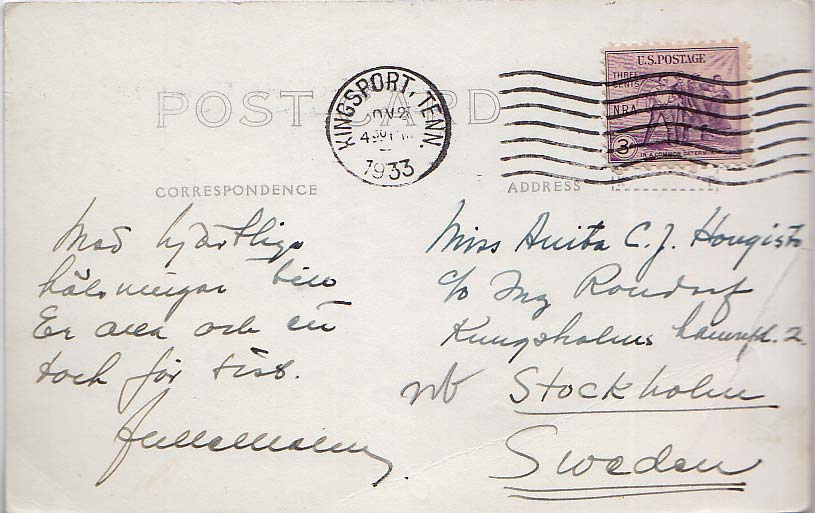 POST CARD
KINGSPORT, TENN
NOV 2
4 30 PM
1933
U.S. POSTAGE
THREE CENTS
NRA
3¢
IN A COMMON DETERMINATION
CORRESPONDENCE
ADDRESS
Med hjärtliga
hälsningar till
Er alla och en
tack för sist.
Miss Anita C. J. Hongisto
c/o Ing Rondorf
Kungsholms hamnpl. 2
Stockholm
Sweden